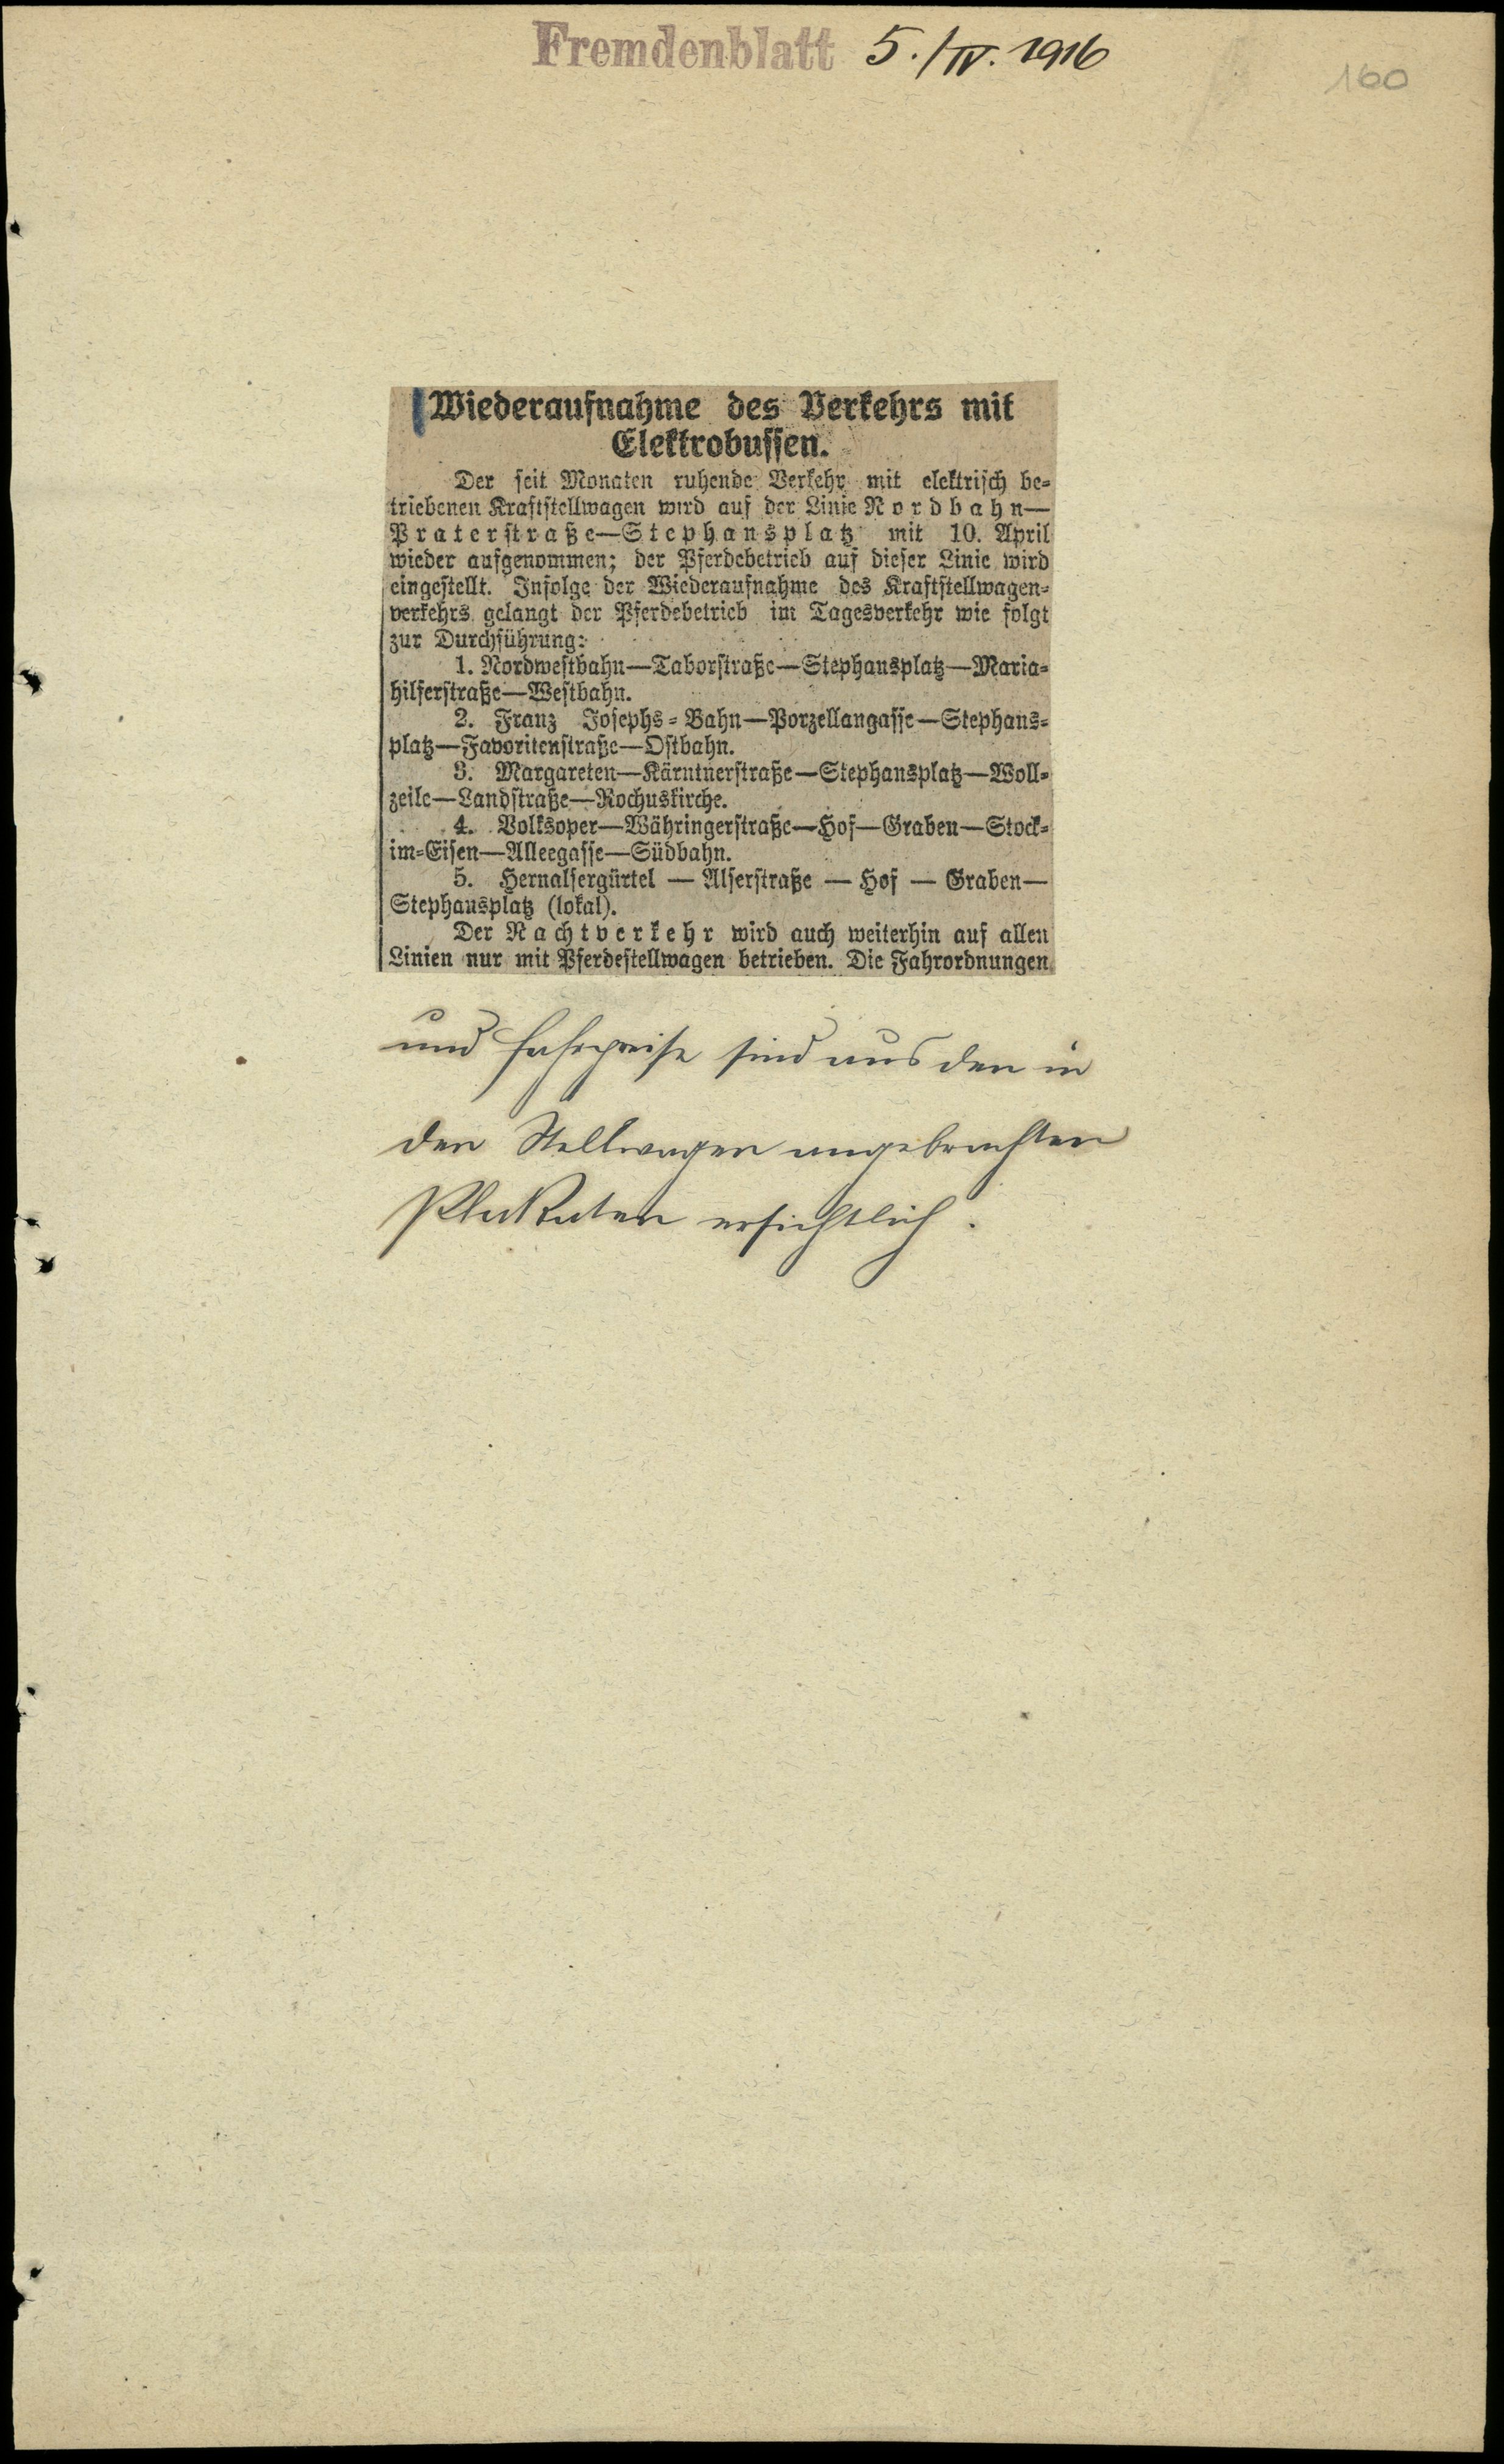 Fremdenblatt 5./IV. 1916
160
Wiederaufnahme des Verkehrs mit
Elektrobussen.
Der seit Monaten ruhende Verkehr mit elektrisch be-
triebenen Kraftstellwagen wird auf der Linie Nordbahn—
Praterstraße—Stephansplatz mit 10. April
wieder aufgenommen; der Pferdebetrieb auf dieser Linie wird
eingestellt. Infolge der Wiederaufnahme des Kraftstellwagen-
verkehrs gelangt der Pferdebetrieb im Tagesverkehr wie folgt
zur Durchführung:
1. Nordwestbahn—Taborstraße—Stephansplatz—Maria-
hilferstraße—Westbahn.
2. Franz Josephs-Bahn—Porzellangasse—Stephans-
platz—Favoritenstraße—Ostbahn.
3. Margareten—Kärntnerstraße—Stephansplatz—Woll-
zeile—Landstraße—Rochuskirche.
4. Volksoper—Währingerstraße—Hof—Graben—Stock-
im-Eisen—Alleegasse—Südbahn.
5. Hernalsergürtel — Alserstraße — Hof — Graben—
Stephansplatz (lokal).
Der Nachtverkehr wird auch weiterhin auf allen
Linien nur mit Pferdestellwagen betrieben. Die Fahrordnungen
und Fahrpreise sind aus den in
den Stellwagen angebrachten
Plakaten ersichtlich.